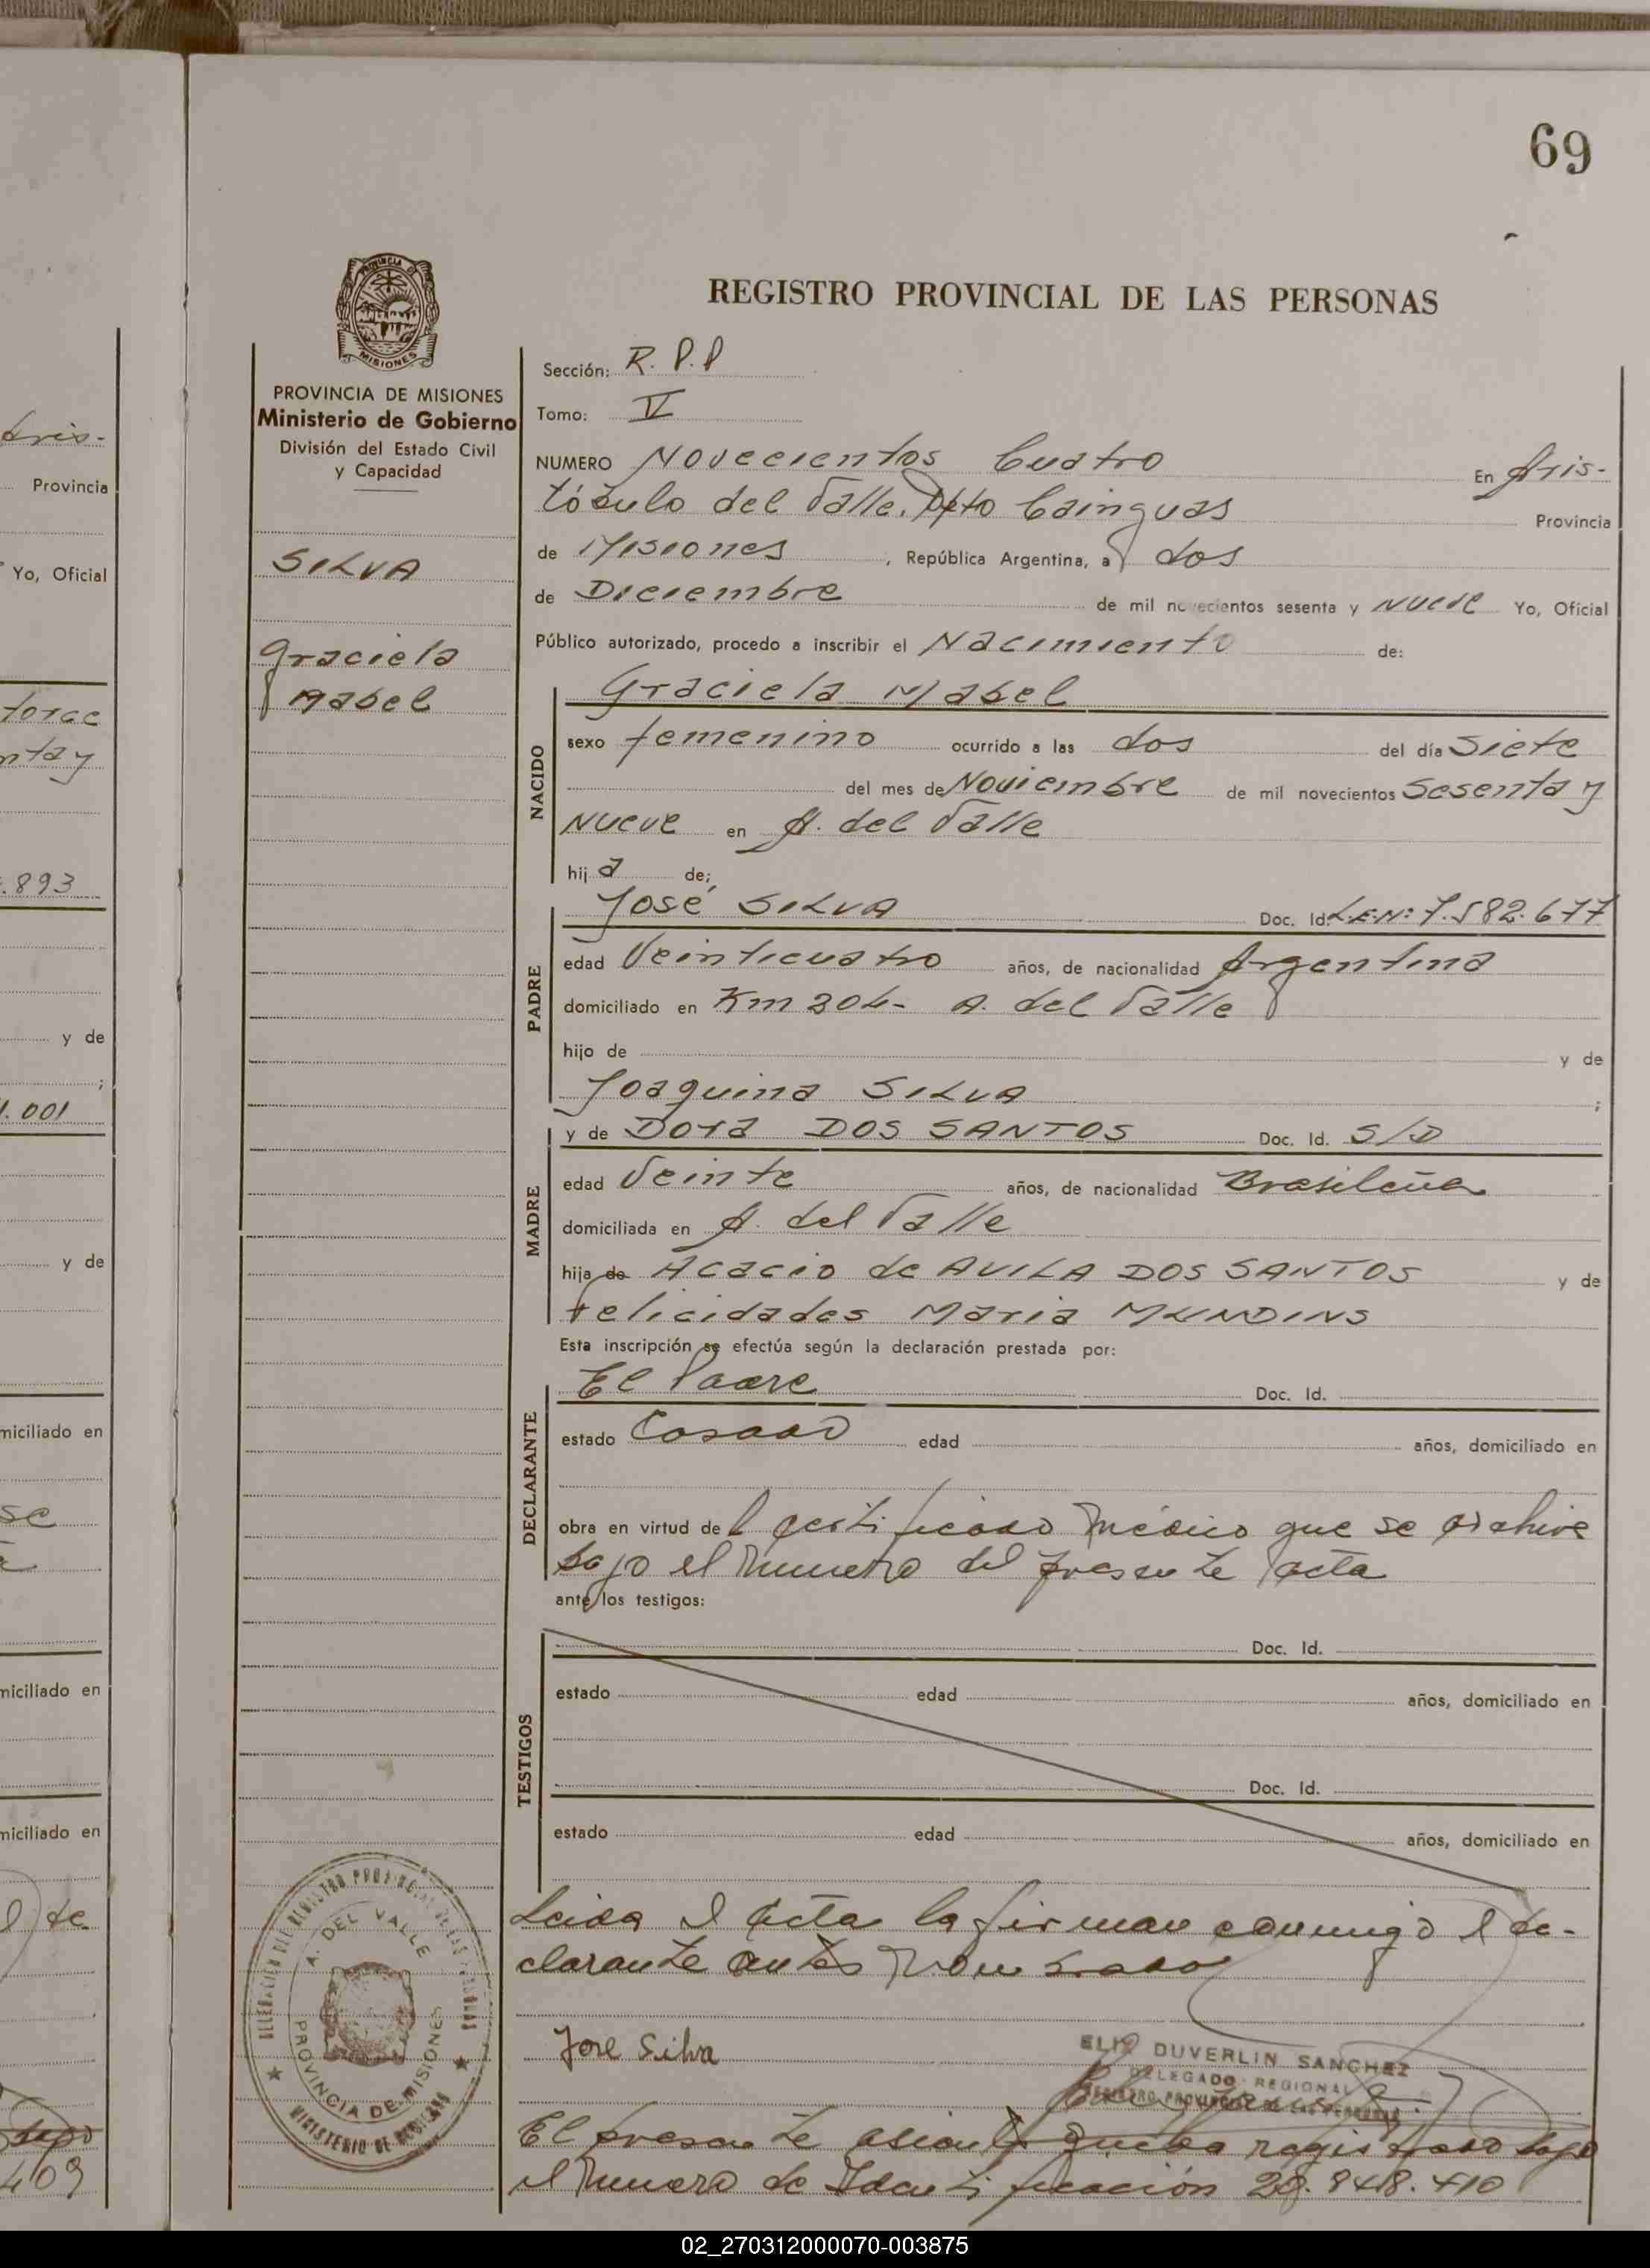 69
REGISTRO PROVINCIAL DE LAS PERSONAS
PROVINCIA DE MISIONES
Ministerio de Gobierno
División del Estado Civil
y Capacidad
SILVA
Graciela
Mabel
Sección: R. P. P
Tomo: V
NUMERO Novecientos Cuatro En Aris-
tóbulo del Valle. Dpto Cainguas Provincia
de Misiones, República Argentina, a dos
de Diciembre de mil novecientos sesenta y Nueve Yo, Oficial
Público autorizado, procedo a inscribir el Nacimiento de:
NACIDO
Graciela Mabel
sexo femenino ocurrido a las dos del día Siete
del mes de Noviembre de mil novecientos Sesenta y
Nueve en A. del Valle
hij a de;
PADRE
José SILVA Doc. Id. L.E.Nº 7.582.677
edad Veinticuatro años, de nacionalidad Argentina
domiciliado en Km 304- A. del Valle
hijo de y de
Joaquina SILVA ;
MADRE
y de Dora DOS SANTOS Doc. Id. S/D
edad Veinte años, de nacionalidad Brasileña
domiciliada en A. del Valle
hija de Acacio de AVILA DOS SANTOS y de
Felicidades Maria MUNDINS
Esta inscripción se efectúa según la declaración prestada por:
DECLARANTE
El Padre Doc. Id.
estado Casado edad años, domiciliado en
obra en virtud de l certificado médico que se archiva
bajo el numero del presente acta
ante los testigos:
TESTIGOS
Doc. Id.
estado edad años, domiciliado en
Doc. Id.
estado edad años, domiciliado en
Leida el acta la firman conmigo el de-
clarante antes nombrado
Jose Silva
ELIX DUVERLIN SANCHEZ
DELEGADO REGIONAL
REGISTRO PROVINCIAL DE LAS PERSONAS
El presente asiento queda registrado bajo
el numero de Identificación 20.848.410
DELEGACION DEL REGISTRO PROVINCIAL DE LAS PERSONAS
A. DEL VALLE
PROVINCIA DE MISIONES
MINISTERIO DE GOBIERNO
Provincia
Yo, Oficial
.893
y de
1.001
y de
miciliado en
miciliado en
miciliado en
409
02_270312000070-003875